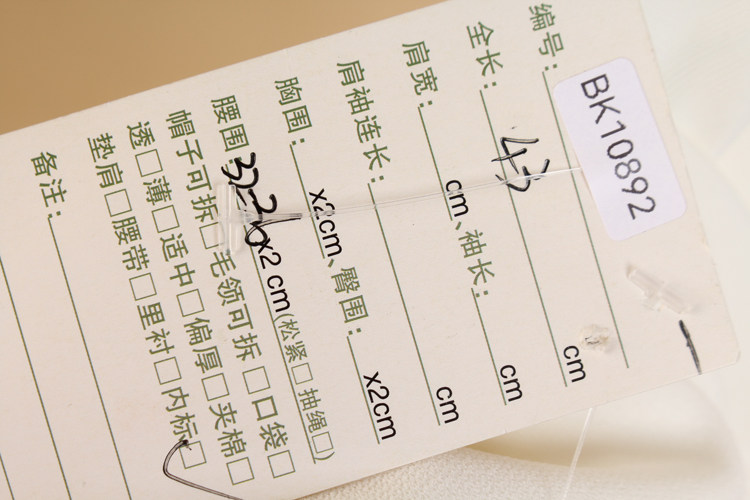 编号: BK10892
全长: 43 cm
肩宽: cm、袖长: cm
肩袖连长: cm
胸围: x2cm、臀围: x2cm
腰围: x2 cm(松紧□ 抽绳□)
帽子可拆□毛领可拆□口袋□
透□薄□适中□偏厚□夹棉□
垫肩□腰带□里衬□内标□
备注: